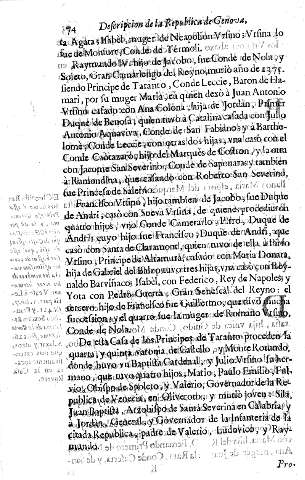 74 Descripcion de la Republica de Genova,
ta Agata: Isabel, muger de Neapolion Vrsino: Vrsina lo
fue de Monfort, Conde de Termoli.
Raymundo IV. hijo de Jacobo, fue Conde de Nola, y
Soleto, Gran Camarlengo del Reyno, murió año de 1375.
siendo Principe de Taranto, Conde Leccie, Baron de
mari, por su muger Maria, en quien dexò à Juan Antonio
Vrsino casado con Ana Colona, hija de Jordàn, Primer
Duque de Benosa; quien tuvo à Catalina casada con Julio
Antonio Aquaviva, Conde de San Fabiano; y à Bartho-
lomè, Conde Leccie, con otras dos hijas, vna casò con el
Conde hijo del Marquès de Cotròn, y la otra
con Jacome San Severino, Conde de Saponara; y tambien
à Ramondina, que casando con Roberto San Severino,
fue Princesa de Salerno.
Francisco Vrsino, hijo tambien de Jacobo, fue Duque
de Andri, casò con Sueva Vrsina, de quienes procedieron
quatro hijos, vno Conde Pirro, Duque de
Andri, cuyo hijo fue Francisco, Duque de Andri, que
casò con Santa de Claramont, quien tuvo de ella à Pirro
Vrsino, Principe de Altamura, casado con Maria Donata,
hija de Gabriel del Balço; tuvo tres hijas, vna casò con Rey-
naldo Isabèl, con Federico, Rey de Napoles y
Yota con Pedro Guevara, Gran Senescal del Reyno: el
tercero hijo de Francisco fue Guillermo, que tuvo mucha
succession, y el quarto fue la muger de Romano Vrsino,
Conde de Nola.
De esta Casa de los Principes de Taranto proceden la
quarta, y quinta de Castello, y Monte Rotundo,
donde huvo vn Baptista Cardenal, y Julio Vrsino su her-
mano, que tuvo quatro hijos, Mario, Paulo Emilio, Fal-
vio, Obispo de Spoleto, y Valerio, Governador de la Re-
publica de Venecia, en y murió joven: Sila,
Juan Baptista, Arçobispo de Santa Severina en Calabria; y
à Jordàn, General, y Governador de la Infanteria de la
citada Republica, padre de Valerio, Ludovico, y Ray-
mundo.
K
Pro-